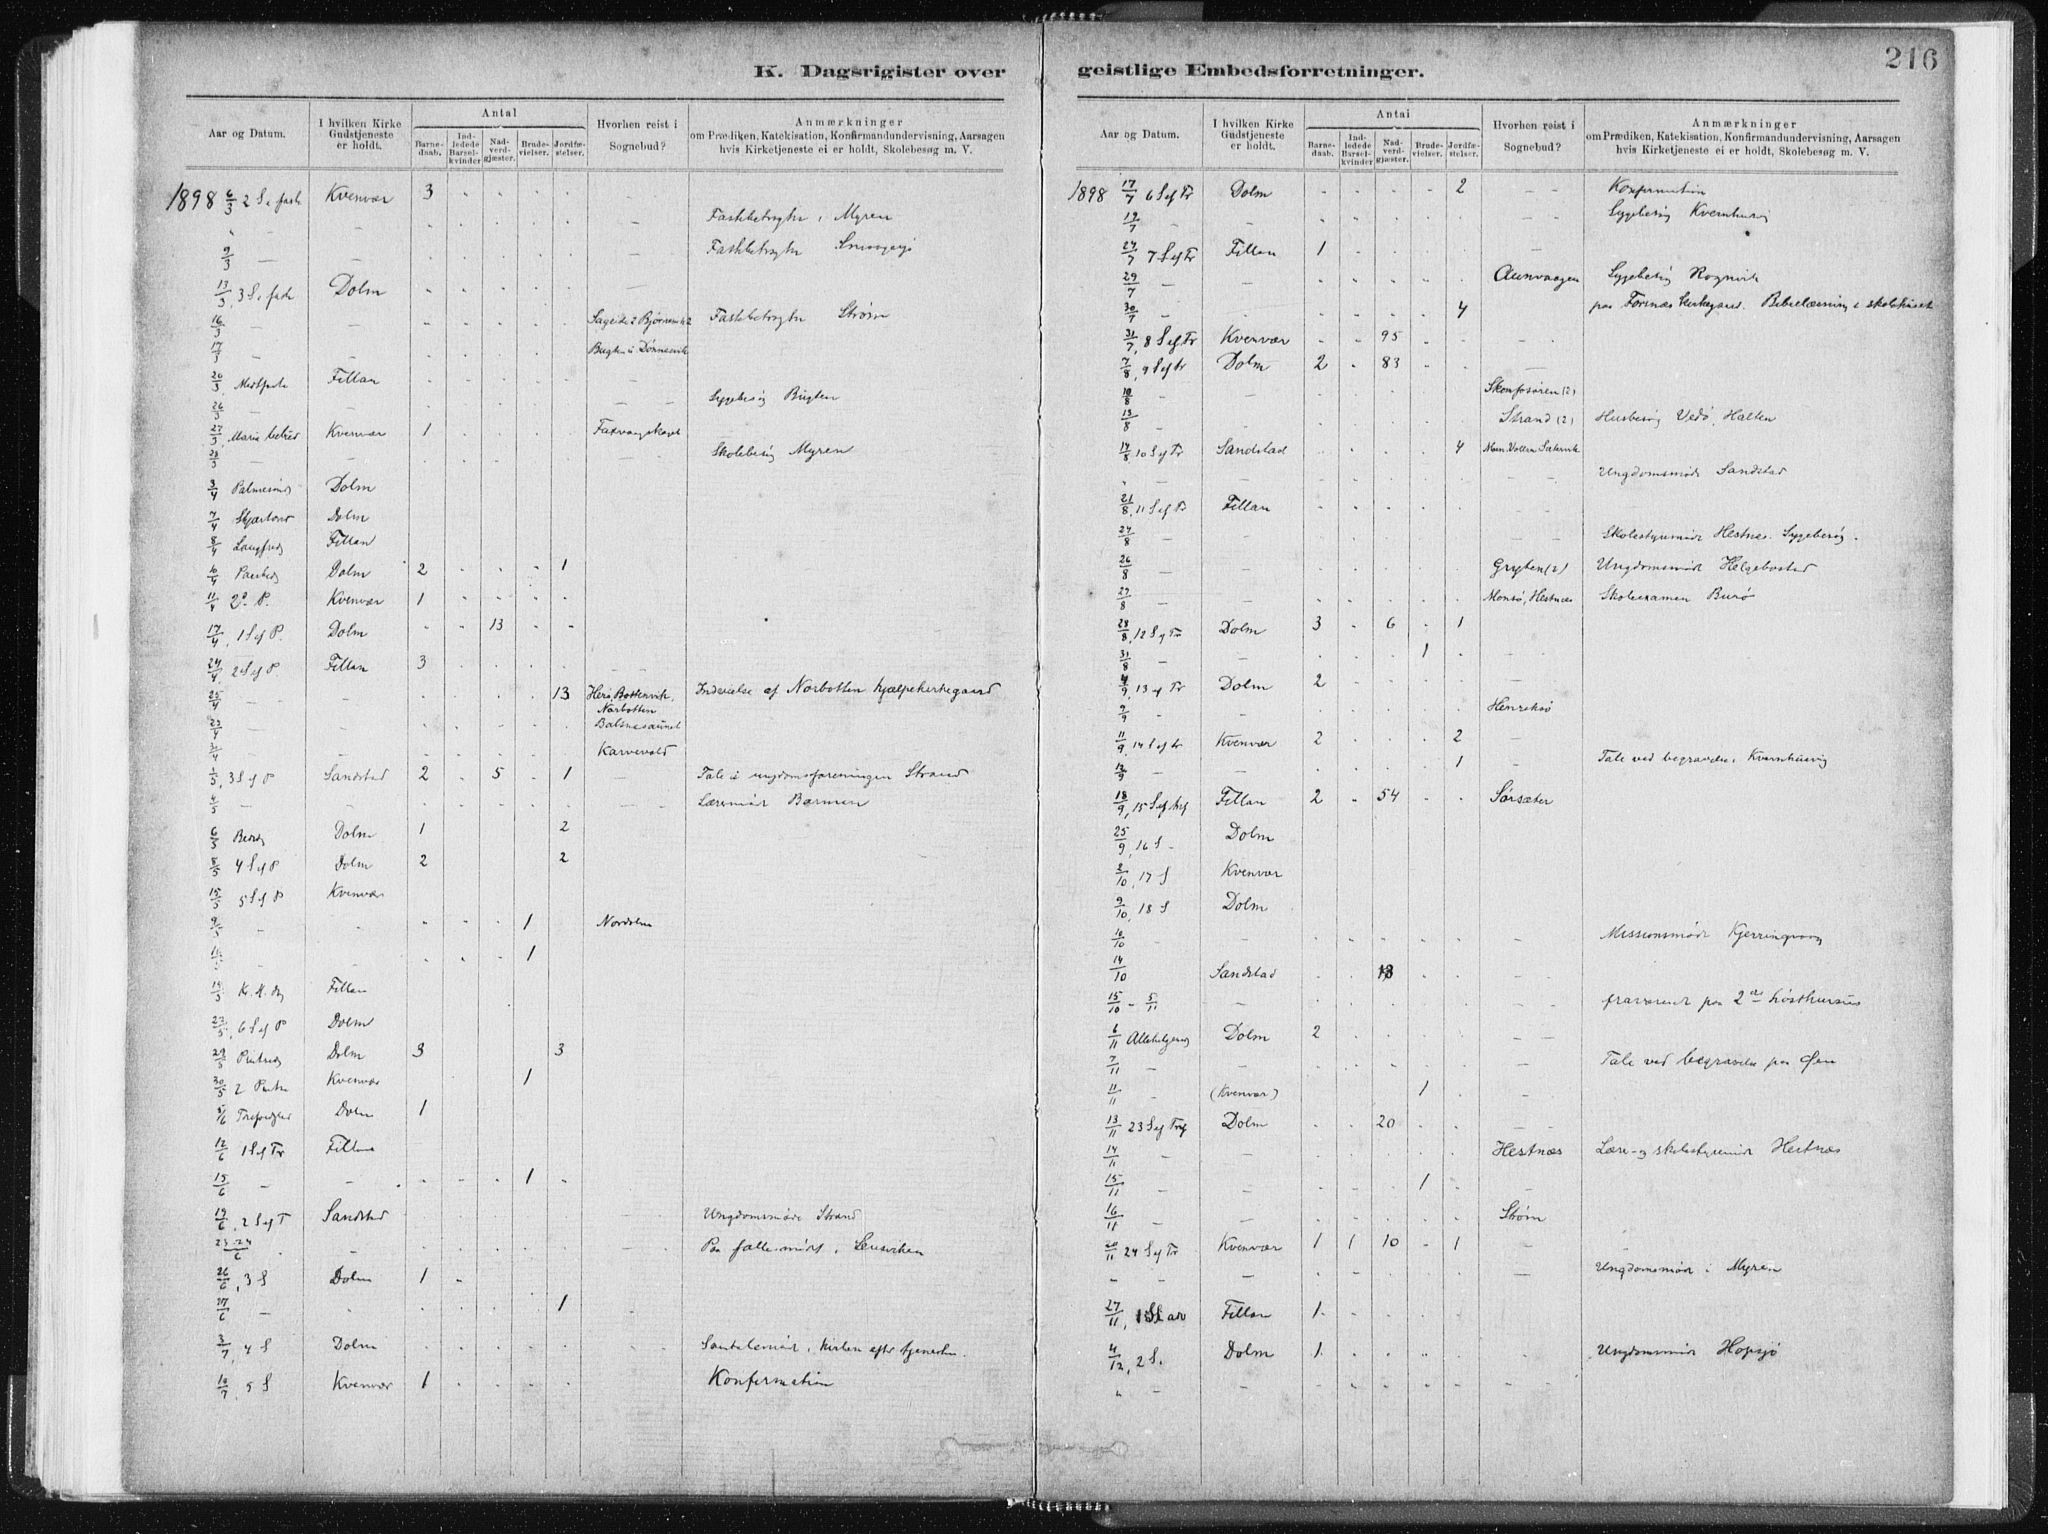 K. Dagsrigister over geistlige Embedsforretninger.
216
Aar og Datum.
I hvilken Kirke Gudstjeneste er holdt.
Antal
Barnedaab.
Indledede Barselkvinder
Nadverdgjæster.
Brudevielser.
Jordfæstelser.
Hvorhen reist i Sognebud?
Anmærkninger
om Prædiken, Katekisation, Konfirmandundervisning, Aarsagen
hvis Kirketjeneste ei er holdt, Skolebesøg m. V.
1898 6/3 2 S i faste Kvenvær 3
Myren
9/3
13/3, 3 S. i faste Dolm
16/3 Strøm
17/3
20/3, Midtfaste Fillan
26/3 Sygebesøg Bugten
27/3, Mariæ Kvenvær 1
28/3 Skolebesøg Myren
3/4 Palmesønd Dolm
7/4 Skjærtorsd Dolm
8/4 Langfred Fillan
10/4 Paaskedg Dolm 2 1
11/4 2den P. Kvenvær 1
17/4, 1 S ef P. Dolm 13
24/4, 2 S ef P Fillan 3
25/4 13 Norbotten Indvielse af Norbotten hjælpekirkegaard
1/5, 3 S ef P Sandstad 2 5 1 Tale i ungdomsforeningen Strand
4/5 Læremøde Barmen
6/5 Bededg Dolm 1 2
8/5 4 S ef P Dolm 2 2
15/5 5 S ef P Kvenvær
9/5 1 Nordolm
1
19/5 Kr. H. dg Fillan
22/5, 6 S ef P Dolm
29/5 Pintsedg Dolm 3 3
30/5 2 Pintse Kvenvær 1
5/6 Dolm 1
12/6 1 S ef Tr Fillan
15/6 1
19/6, 2 S ef T Sandstad Ungdomsmøde Strand
23-24/6 Paa fællesmøde i Lensviken
26/6, 3 S Dolm 1
27/6 1
3/7, 4 S Dolm
10/7, 5 S Kvenvær 1 Konfirmation
Aar og Datum.
I hvilken Kirke Gudstjeneste er holdt.
Antal
Barnedaab.
Indledede Barselkvinder
Nadverdgjæster.
Brudevielser.
Jordfæstelser.
Hvorhen reist i Sognebud?
Anmærkninger
om Prædiken, Katekisation, Konfirmandundervisning, Aarsagen
hvis Kirketjeneste ei er holdt, Skolebesøg m. V.
1898 17/7 6 S ef Tr Dolm 2 Konfirmation
19/7 Sygebesøg Kvernhusvg
24/7 7 S ef Tr Fillan 1
29/7 Aunvaagen Sygebesøg Rognvik
30/7 4 paa Forsnæs kirkegaard. Bibellæsning i skolehuset
31/7, 8 S ef Tr Kvenvær 95
7/8, 9 S ef tr Dolm 2 83
10/8 (2)
13/8 Strand (2) Husbesøg Vedø, Halten
14/8, 10 S ef Tr Sandstad 4
Ungdomsmøde Sandstad
21/8, 11 S ef Tr Fillan
24/8 Skolestyremøde Hestnes. Sygebesøg.
26/8 Gryten (2) Ungdomsmøde Helgebostad
27/8 Monsø, Hestnæs Skoleexamen Burø
28/8, 12 S ef Tr Dolm 3 6 1
31/8 1
4/9, 13 ef Tr Dolm 2
9/9 Henriksø
11/9, 14 S ef tr Kvenvær 2 2
12/9 1 Tale ved begravelse i Kvernhusvig
18/9, 15 S ef tref Fillan 2 54 Sørsæter
25/9, 16 S. Dolm
2/10, 17 S Kvenvær
9/10, 18 S Dolm
10/10 Missionsmøde Kjerringvaag
14/10 Sandstad 18
15/10 - 5/11 fraværende paa 2det høstkursus
6/11 Allehelgensdg Dolm 2
7/11 Tale ved begravelse paa Øen
11/11 (Kvenvær) 1
13/11 23 S ef Tref Dolm 20
14/11 Hestnæs Lære- og skolestyremøde Hestnæs
15/11 1
16/11 Strøm
20/11 24 S ef Tr Kvenvær 1 1 10 1
Ungdomsmøde i Myren
27/11, 1 S i adv Fillan 1
4/12, 2 S. Dolm 1 Ungdomsmøde Hopsjø